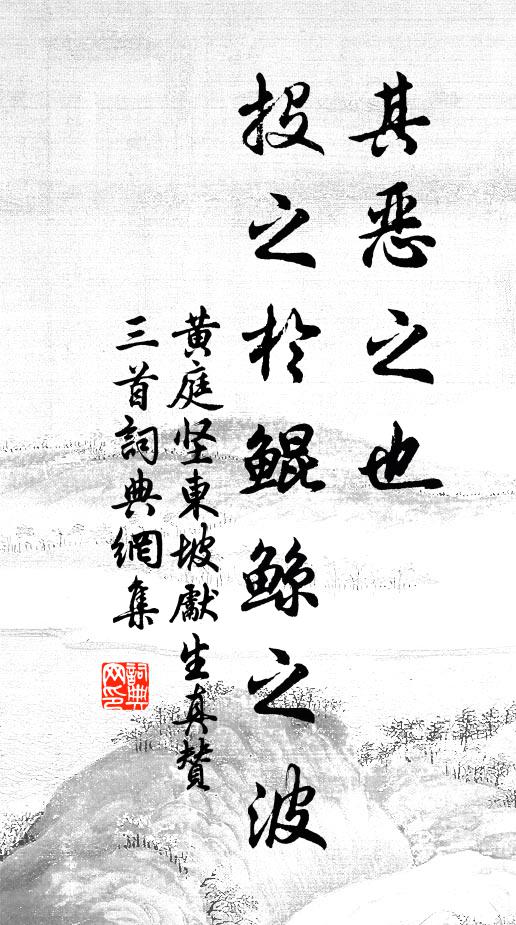 其恶之也
投之於鲲鲸之波
黄庭坚東坡獻生真赞
三首詞典網集
詞典
网印